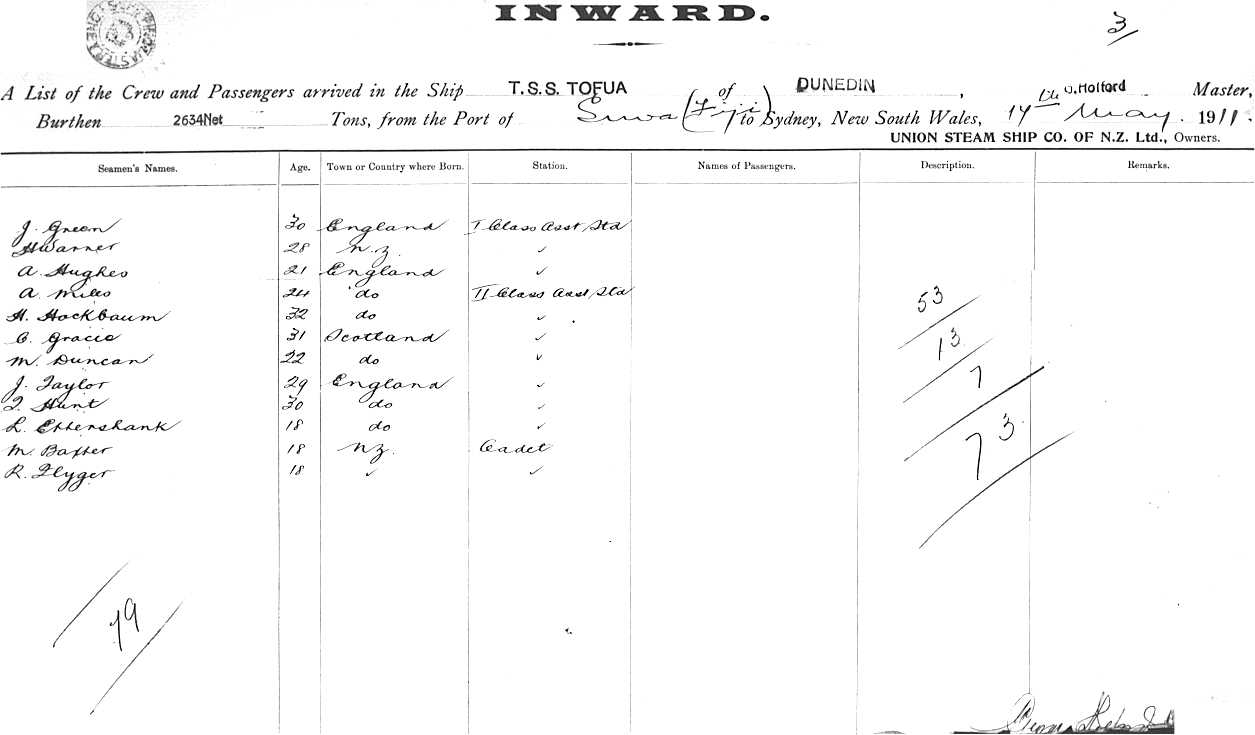 INWARD.
3
A List of the Crew and Passengers arrived in the Ship T.S.S. TOFUA of DUNEDIN, Holford Master,
Burthen 2634Net Tons, from the Port of Suva (Fiji) to Sydney, New South Wales, 14 May. 1911.
UNION STEAM SHIP CO. OF N.Z. Ltd., Owners.
Seamen's Names. Age. Town or Country where Born. Station. Names of Passengers. Description. Remarks.
J. Green 30 England I Class Asst Std
H Warner 28 N.Z. ✓
A. Hughes 21 England ✓
A. Miles 24 do II Class Asst Std
H. Hockbaum 32 do ✓
C. Gracie 31 Scotland ✓
M. Duncan 22 do ✓
J. Taylor 29 England ✓
T. Hunt 30 do ✓
L. Ettershank 18 do ✓
M. Baxter 18 NZ. Cadet
R. Flyger 18 ✓ ✓
53
13
7
73.
79